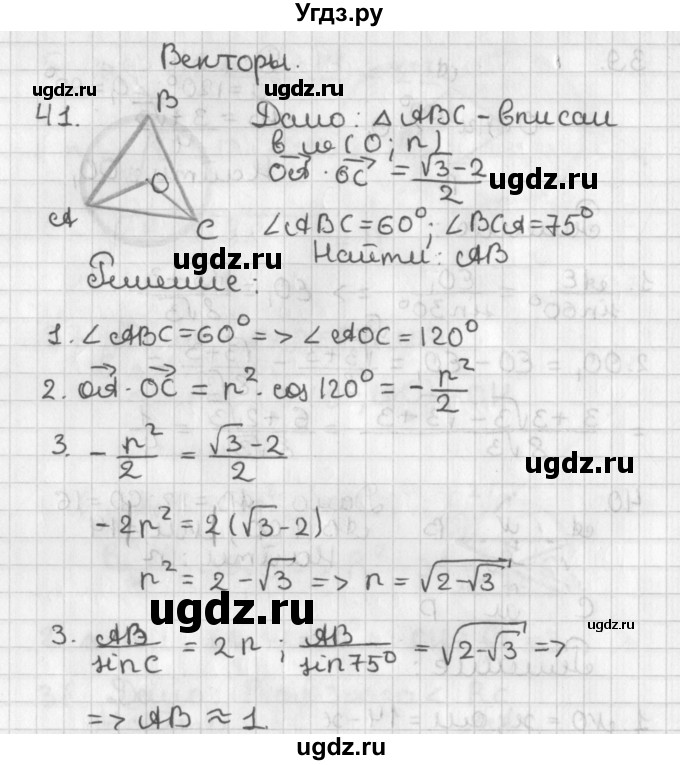 Угдз.ру
Векторы.
ugdz.ru ugdz.ru
41. B Дано: △ABC - вписан
в ω (O; r)
O OA · OC = (√3-2)/2
ugdz.ru
A C ∠ABC = 60°; ∠BCA = 75°
ugdz.ru Найти: AB
Решение:
1. ∠ABC = 60° => ∠AOC = 120°
2. OA · OC = r² · cos 120° = - r²/2
3. - r²/2 = (√3-2)/2
ugdz.ru
- 2r² = 2(√3-2)
r² = 2 - √3 => r = √(2-√3)
ugdz.ru
ugdz.ru
3. AB/sin C = 2r; AB/sin 75° = √(2-√3) =>
=> AB ≈ 1.
ugdz.ru
ugdz.ru